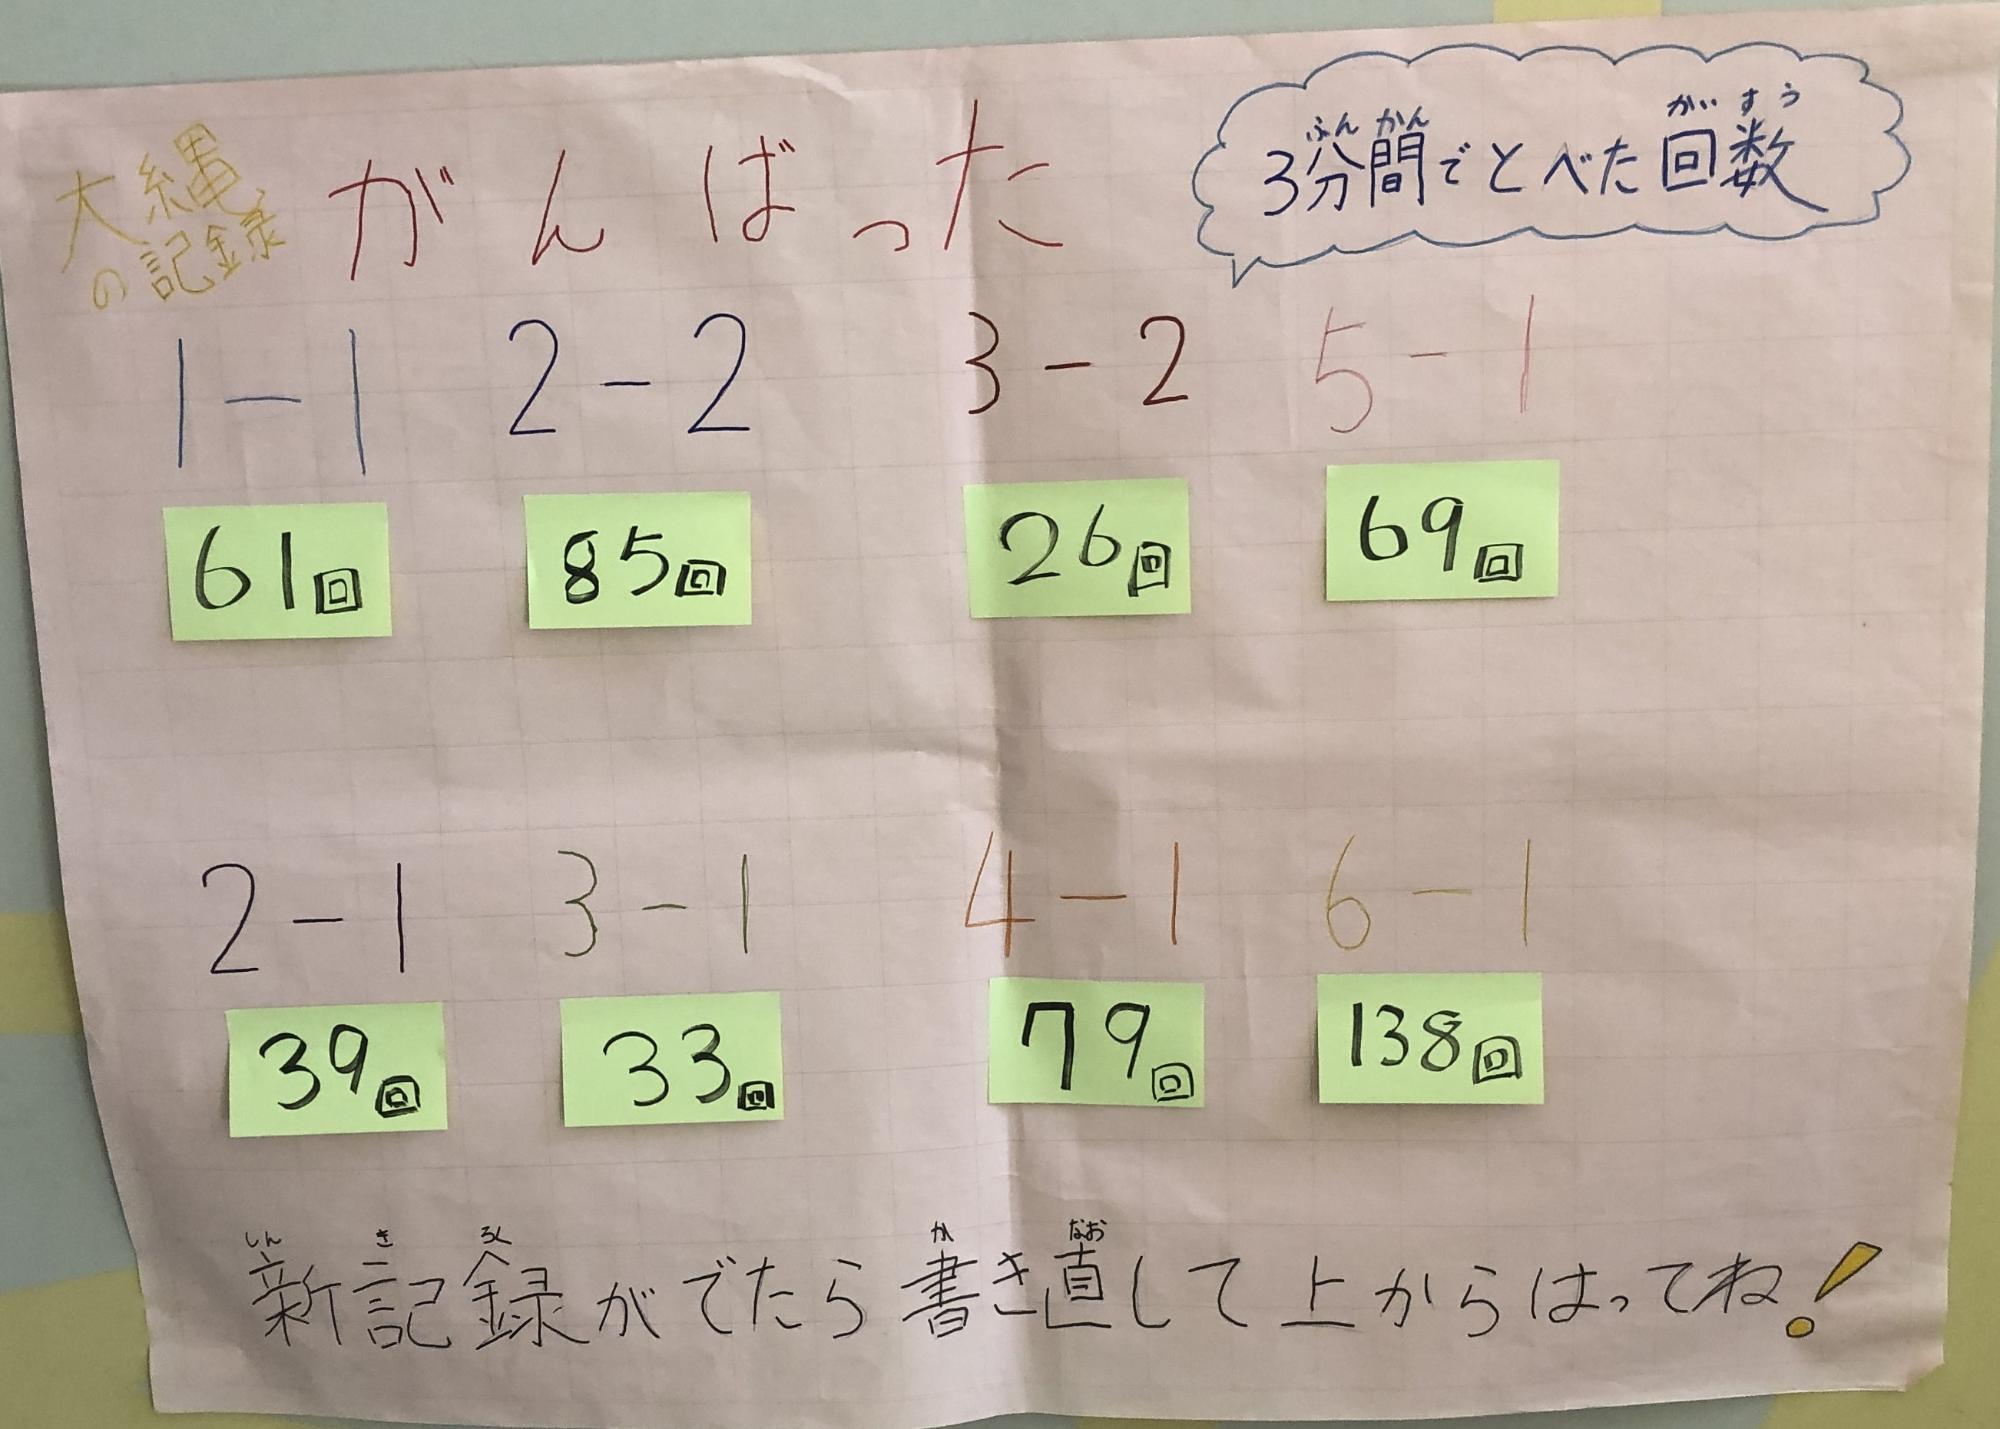 大縄
の記録
がんばった
ふんかん がいすう
3分間でとべた回数
1-1 2-2 3-2 5-1
61回 85回 26回 69回
2-1 3-1 4-1 6-1
39回 33回 79回 138回
しん き ろく か なお
新記録がでたら書き直して上からはってね!